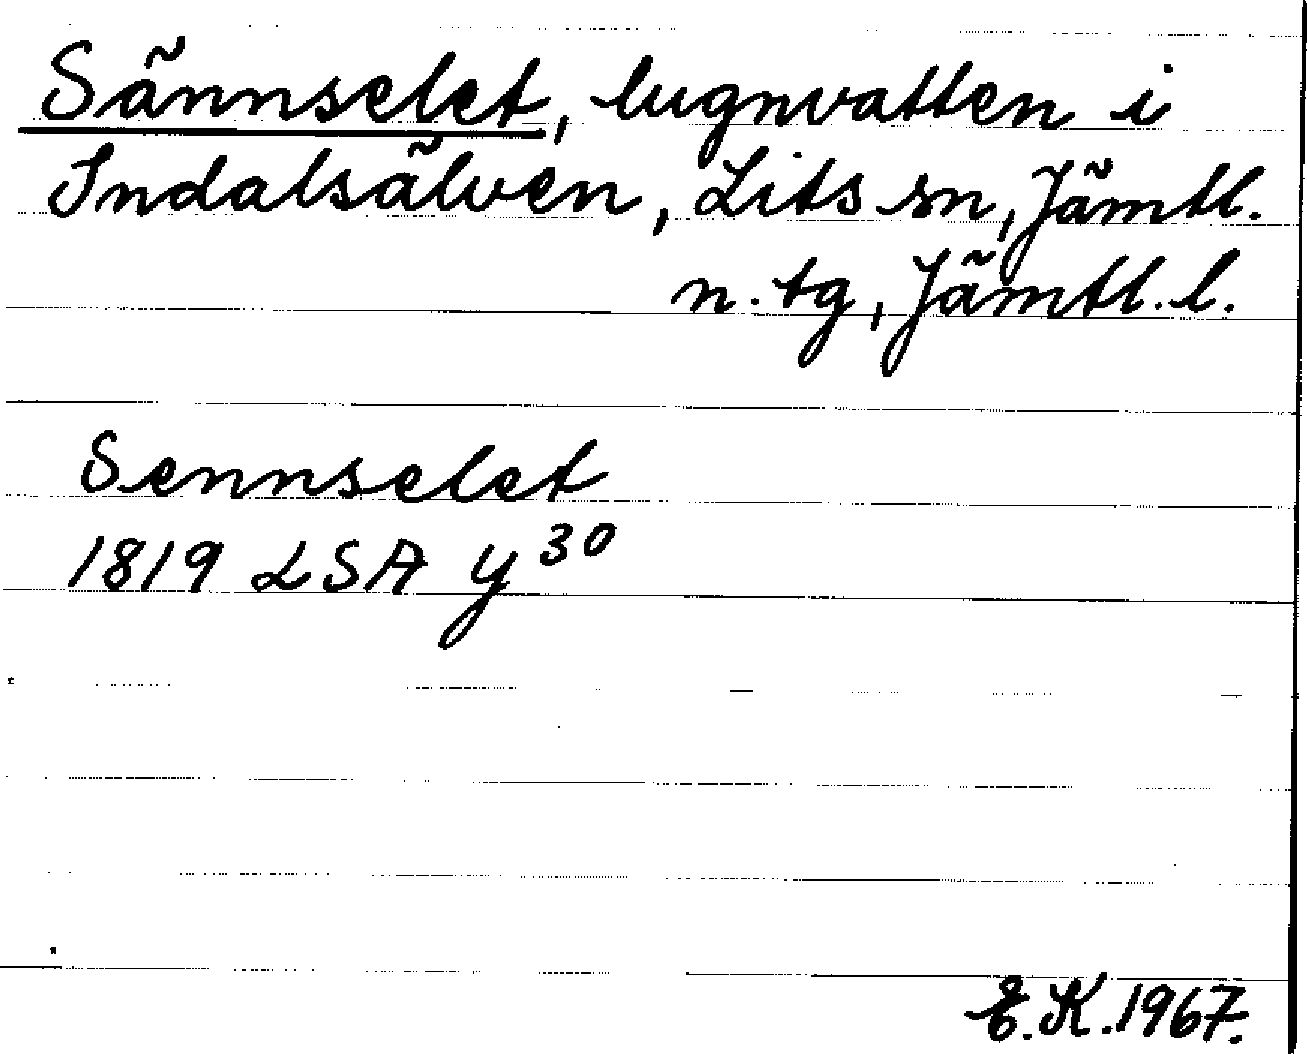 Sännselet, lugnvatten i
Indalsälven, Lits sn, Jämtl.
n. tg, Jämtl. l.
Sennselet
1819 LSA y30
E.K. 1967.